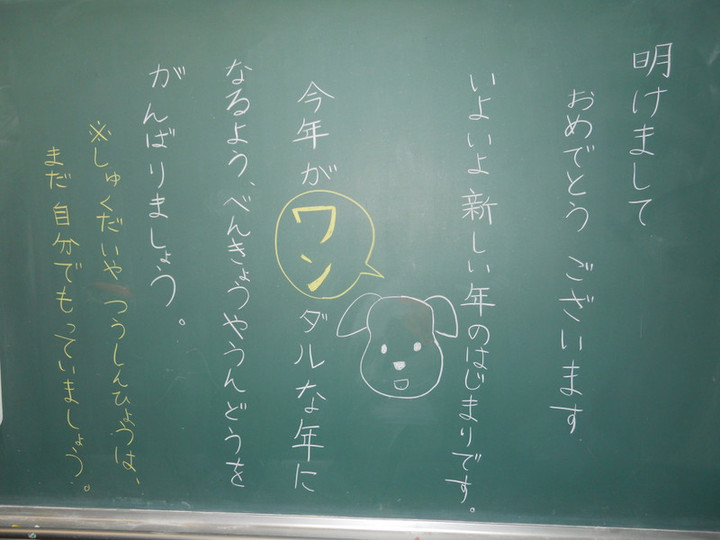 明けまして
おめでとう ございます
いよいよ 新しい年のはじまりです。
今年が ワンダルな年に
なるよう、べんきょうやうんどうを
がんばりましょう。
※しゅくだいや つうしんひょうは、
まだ 自分でもっていましょう。